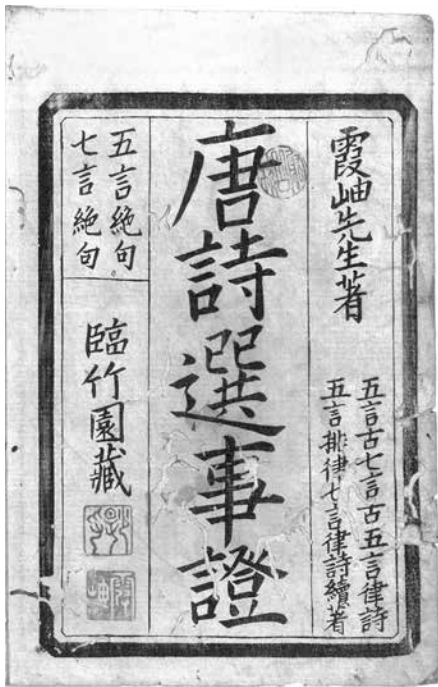 霞岫先生著
五言古七言古五言律詩
五言排律七言律詩續著
唐詩選事證
五言絶句
七言絶句
臨竹園藏